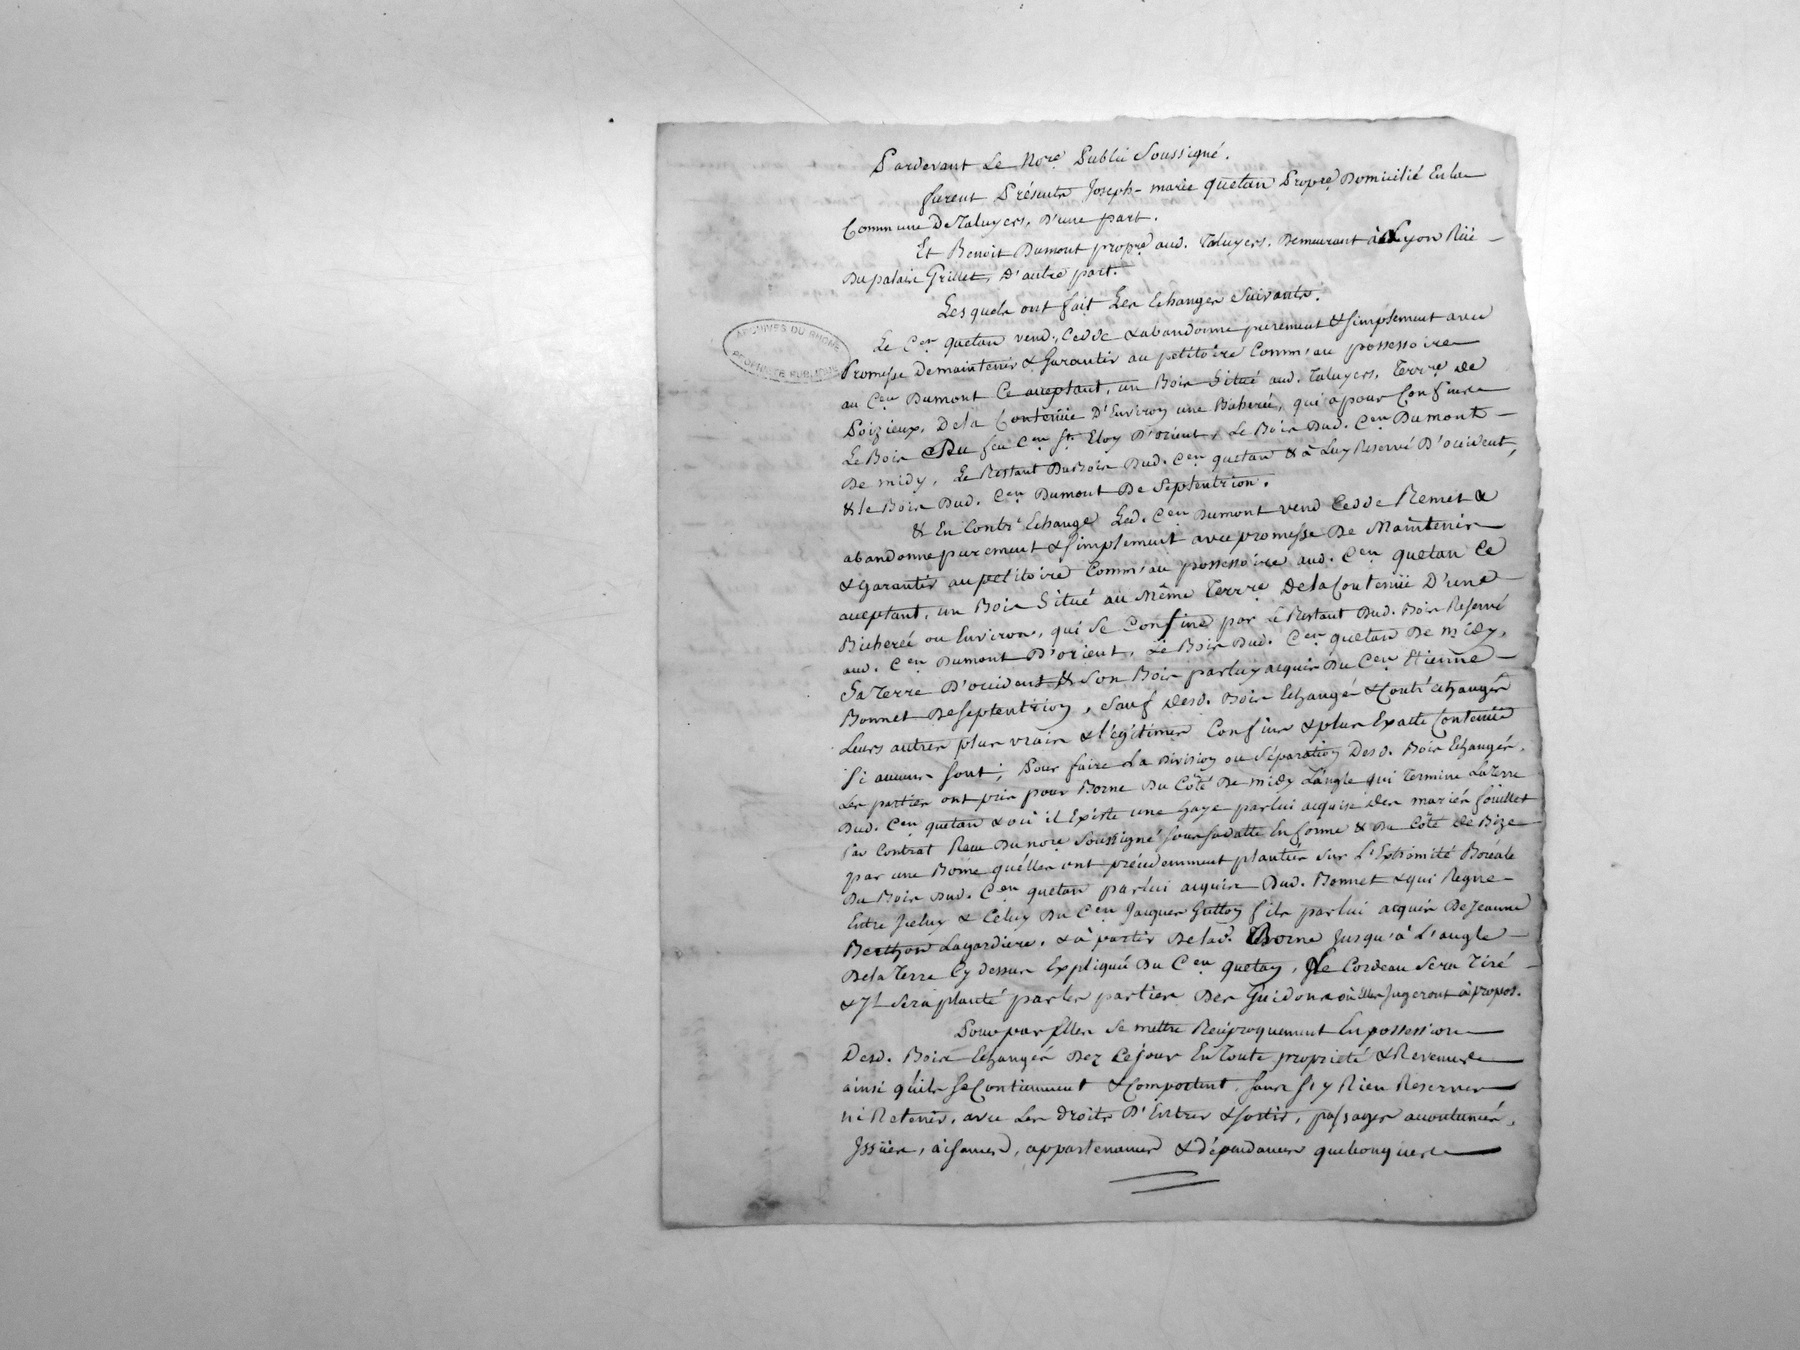 Pardevant Le No.re Public Soussigné.
furent Présents Joseph-marie quetan Propre Domicilié En la
Commune De Taluyers, D'une part.
Et Benoit Dumont propre aud. Taluyers, Demeurant à Lyon Rüe
Du palais Grillet, D'autre part.
Lesquels ont fait Les Echanges Suivants.
ARCHIVES DU RHÔNE
PROPRIÉTÉ PUBLIQUE
Le C.en quetan vend, Cedde & abandonne purement & simplement avec
Promesse De maintenir & Garantir au petitoire Comm'au possessoire
au C.en Dumont Ce aceptant, un Bois Situé aud. Taluyers, Terre de
Poizieux, De la Contenüe D'Environ une Bicherée, qui a pour Confins
Le Bois Du feu C.en St. Eloy D'orient, Le Bois Dud. C.en Dumont
De midy, Le Restant Du Bois Dud. C.en quetan & à Luy Reservé D'occident,
& le Bois Dud. C.en Dumont De Septentrion.
& En Contr'Echange Led. C.en Dumont vend Cedde Remet &
abandonne purement & simplement avec promesse De Maintenir
& Garantir au petitoire Comm'au possessoire aud. C.en quetan Ce
aceptant, un Bois Situé au Même Terre De la Contenüe D'une
Bicherée ou Environ, qui Se Confine par Le Restant Dud. Bois Reservé
aud. C.en Dumont D'orient, Le Bois Dud. C.en quetan De midy,
Sa Terre D'occident & Son Bois par luy acquis Du C.en Etienne
Bonnet De Septentrion, Sauf desd. Bois Echangés & Contr'echangés
Leurs autres plus vrais & légitimes Confins & plus Exacte Contenüe
Si aucuns sont; Pour faire La Division ou Séparation Desd. Bois Echangés,
Les parties ont pris pour Borne Du Côté De midy L'angle qui Termine La Terre
Dud. C.en quetan & où il Existe une Haye par lui acquise des mariés fouillet
Par Contrat Recu Du nore Soussigné Sous Sa datte En forme & Du Côté de Bize
par une Borne qu'elles ont précédemment plantée sur L'Extrémité Boréale
Du Bois Dud. C.en quetan par lui acquis Dud. Bonnet & qui Regne
Entre Jceluy & Celuy Du C.en Jacques Guttoy fils par lui acquis De Jeanne
Berthon Lagardiere, & à partir De lad. Borne Jusqu'à L'angle
De la Terre Cy dessus Expliquée Du C.en quetan, Le Cordeau Sera Tiré
& Jl Sera planté par les parties Des Guidons où Elles Jugeront à propos.
Pour par Elles Se mettre Reciproquement En possession
Desd. Bois Echangés Dez Ce jour En Toute proprieté & Revenus
ainsi qu'ils Se Contiennent & Comportent, Sans s'y Rien Reserver
ni Retenir, avec Les Droits D'Entrer & sortir, passages accoutumés,
Jssües, aisances, appartenances & dépendances quelconques